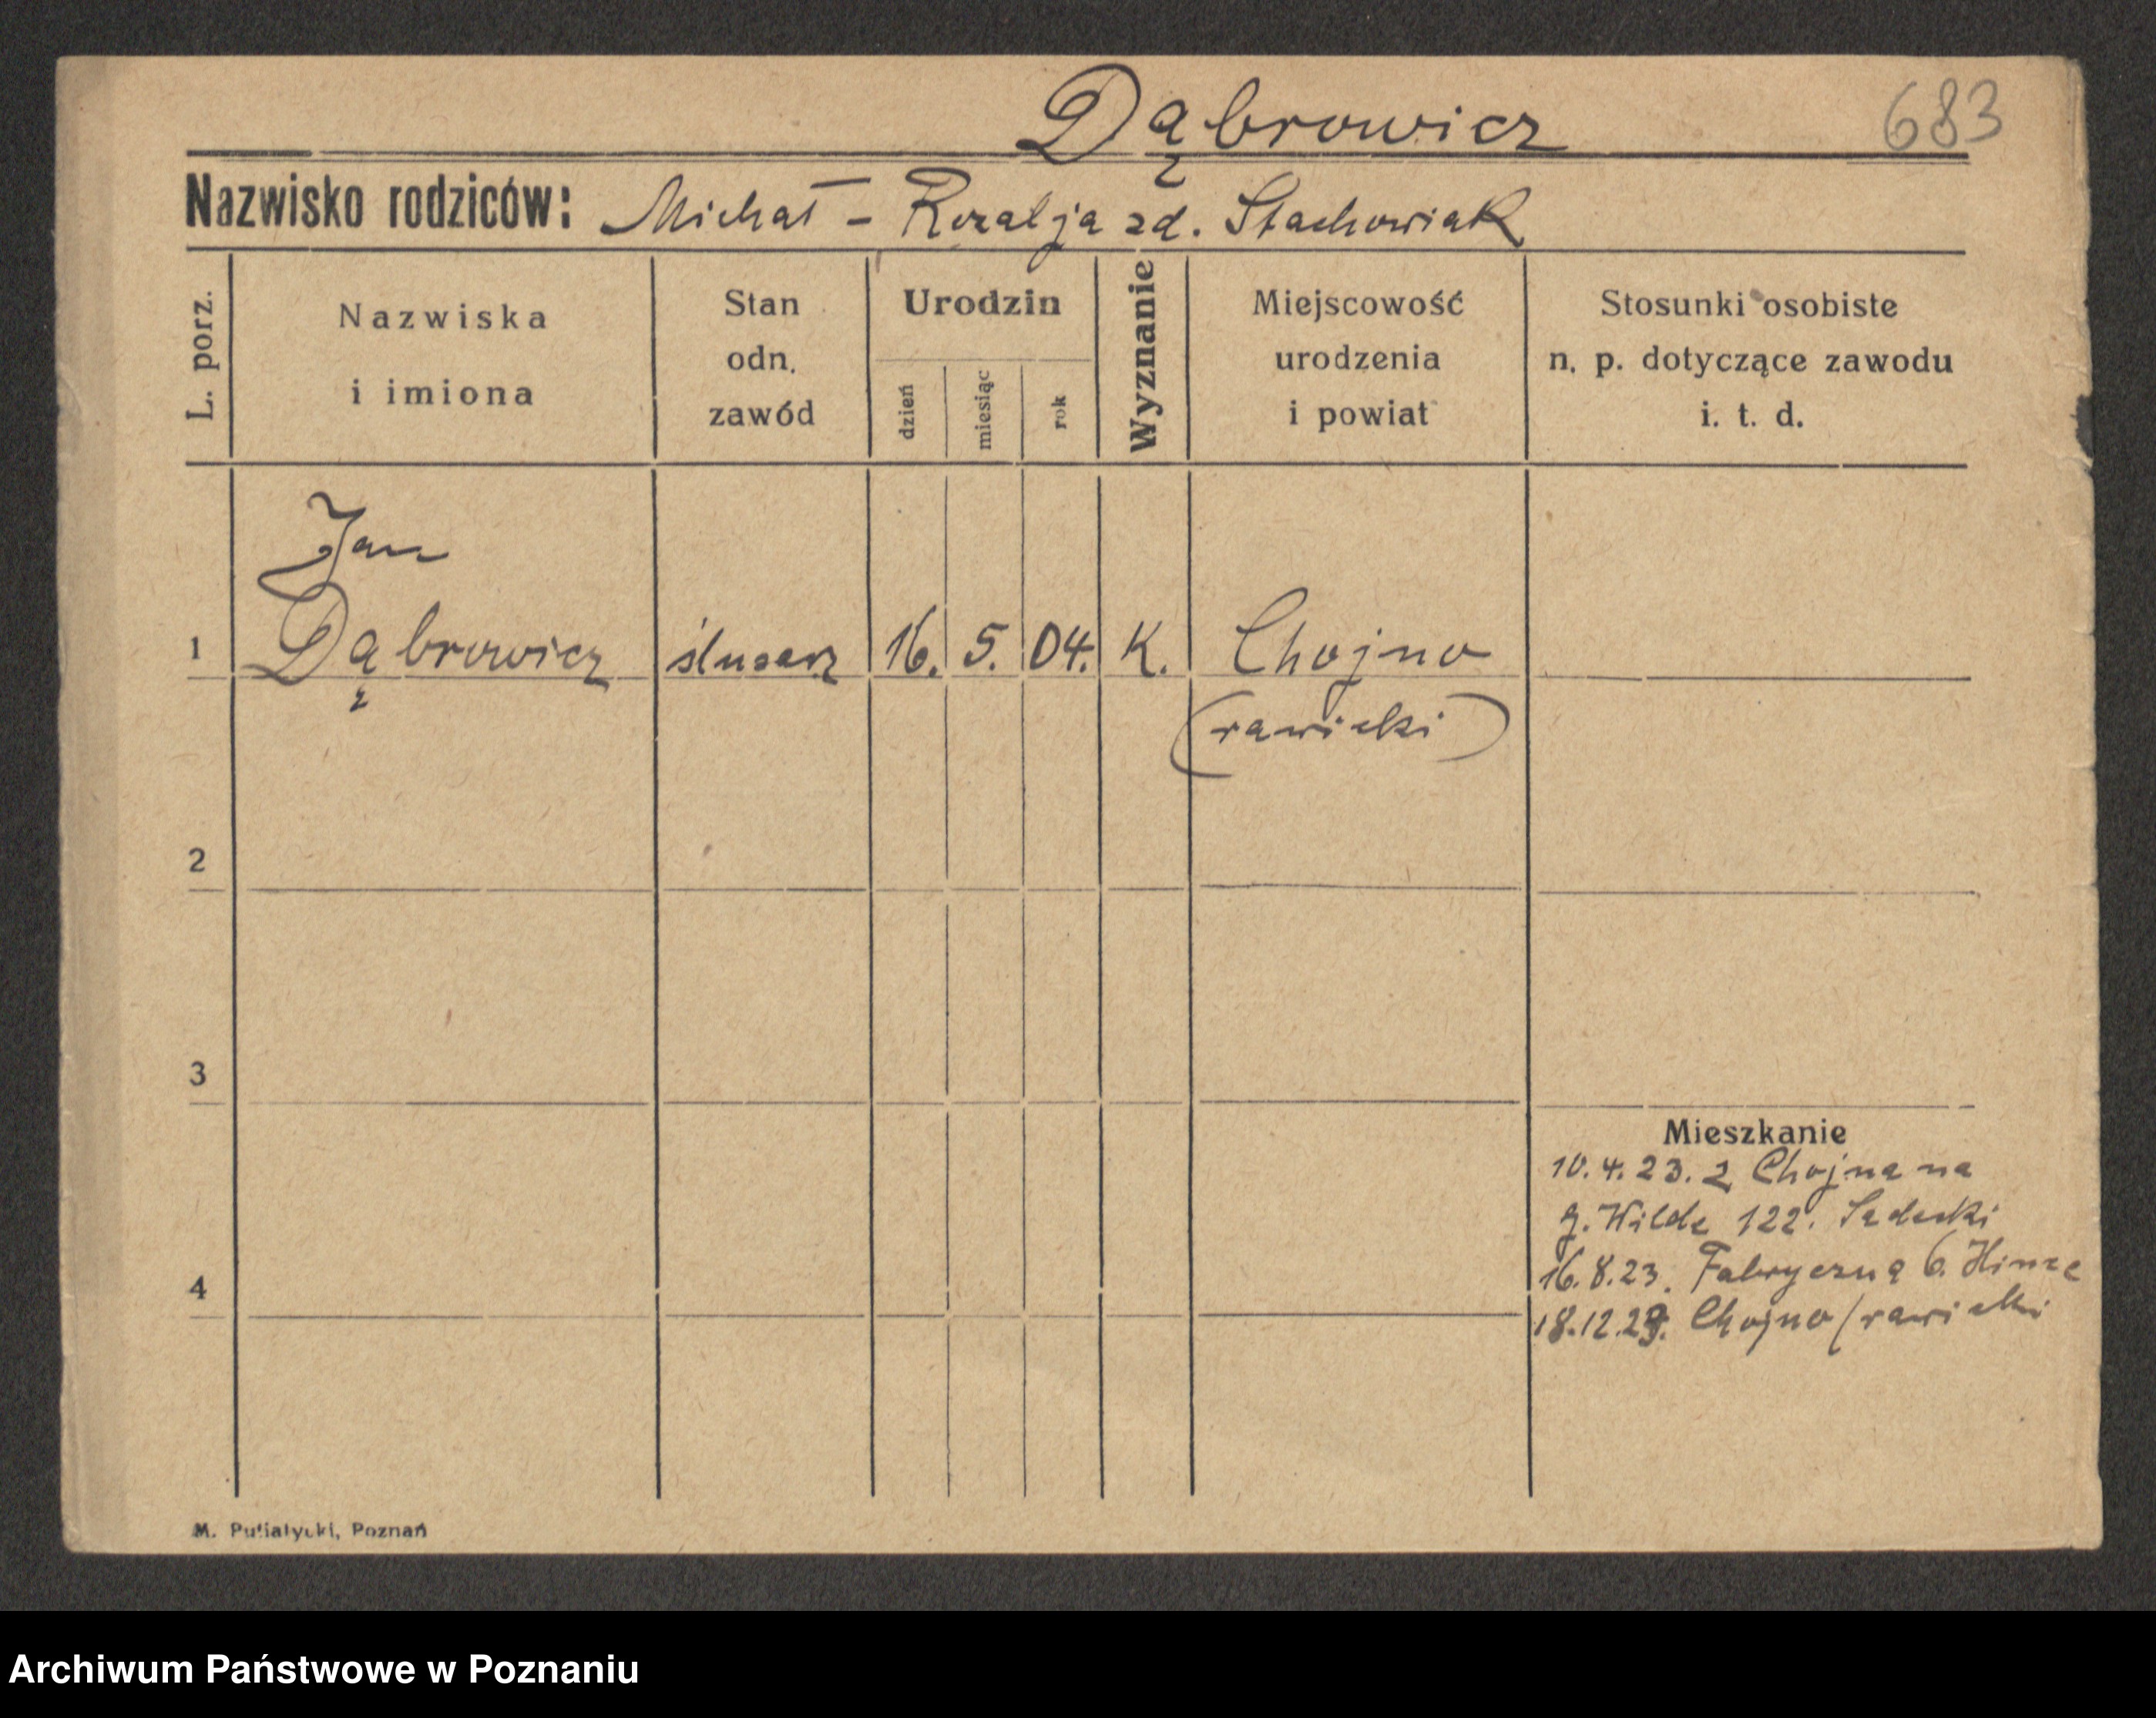 Dąbrowicz
683
Nazwisko rodziców: Michał - Rozalja zd. Stachowiak
L. porz.
Nazwiska
i imiona
Stan
odn.
zawód
Urodzin
dzień
miesiąc
rok
Wyznanie
Miejscowość
urodzenia
i powiat
Stosunki osobiste
n. p. dotyczące zawodu
i. t. d.
Jan
1 Dąbrowicz ślusarz 16. 5. 04. K. Chojno
(rawicki)
2
3
Mieszkanie
10.4.23. z Chojna na
g. Wilde 122. Sadecki
16.8.23. Fabryczną 6. Hinze
4
18.12.29. Chojno (rawicki
M. Putiatycki, Poznań
Archiwum Państwowe w Poznaniu